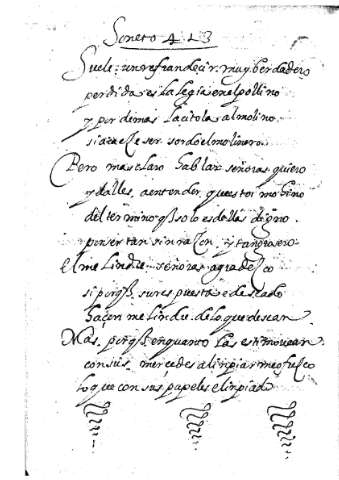 Soneto 413
Suele un refran decir muy berdadero
perdida es la legia en el pollino
y por demas la citola al molino
si acaeçe ser sordo el molinero.
Pero mas claro hablar señoras quiero
y dalles a entender questoi mohino
del termino q̃ solo es dellas digno
por ser tan sin razon y tan grosero.
El melindre señoras agradezco
si porq̃ su respuesta e deseado
haçen melindre de lo que desean
Mas porq̃ en quanto las estimo vean
con sus mercedes a limpiar me ofrezco
lo que con sus papeles e limpiado